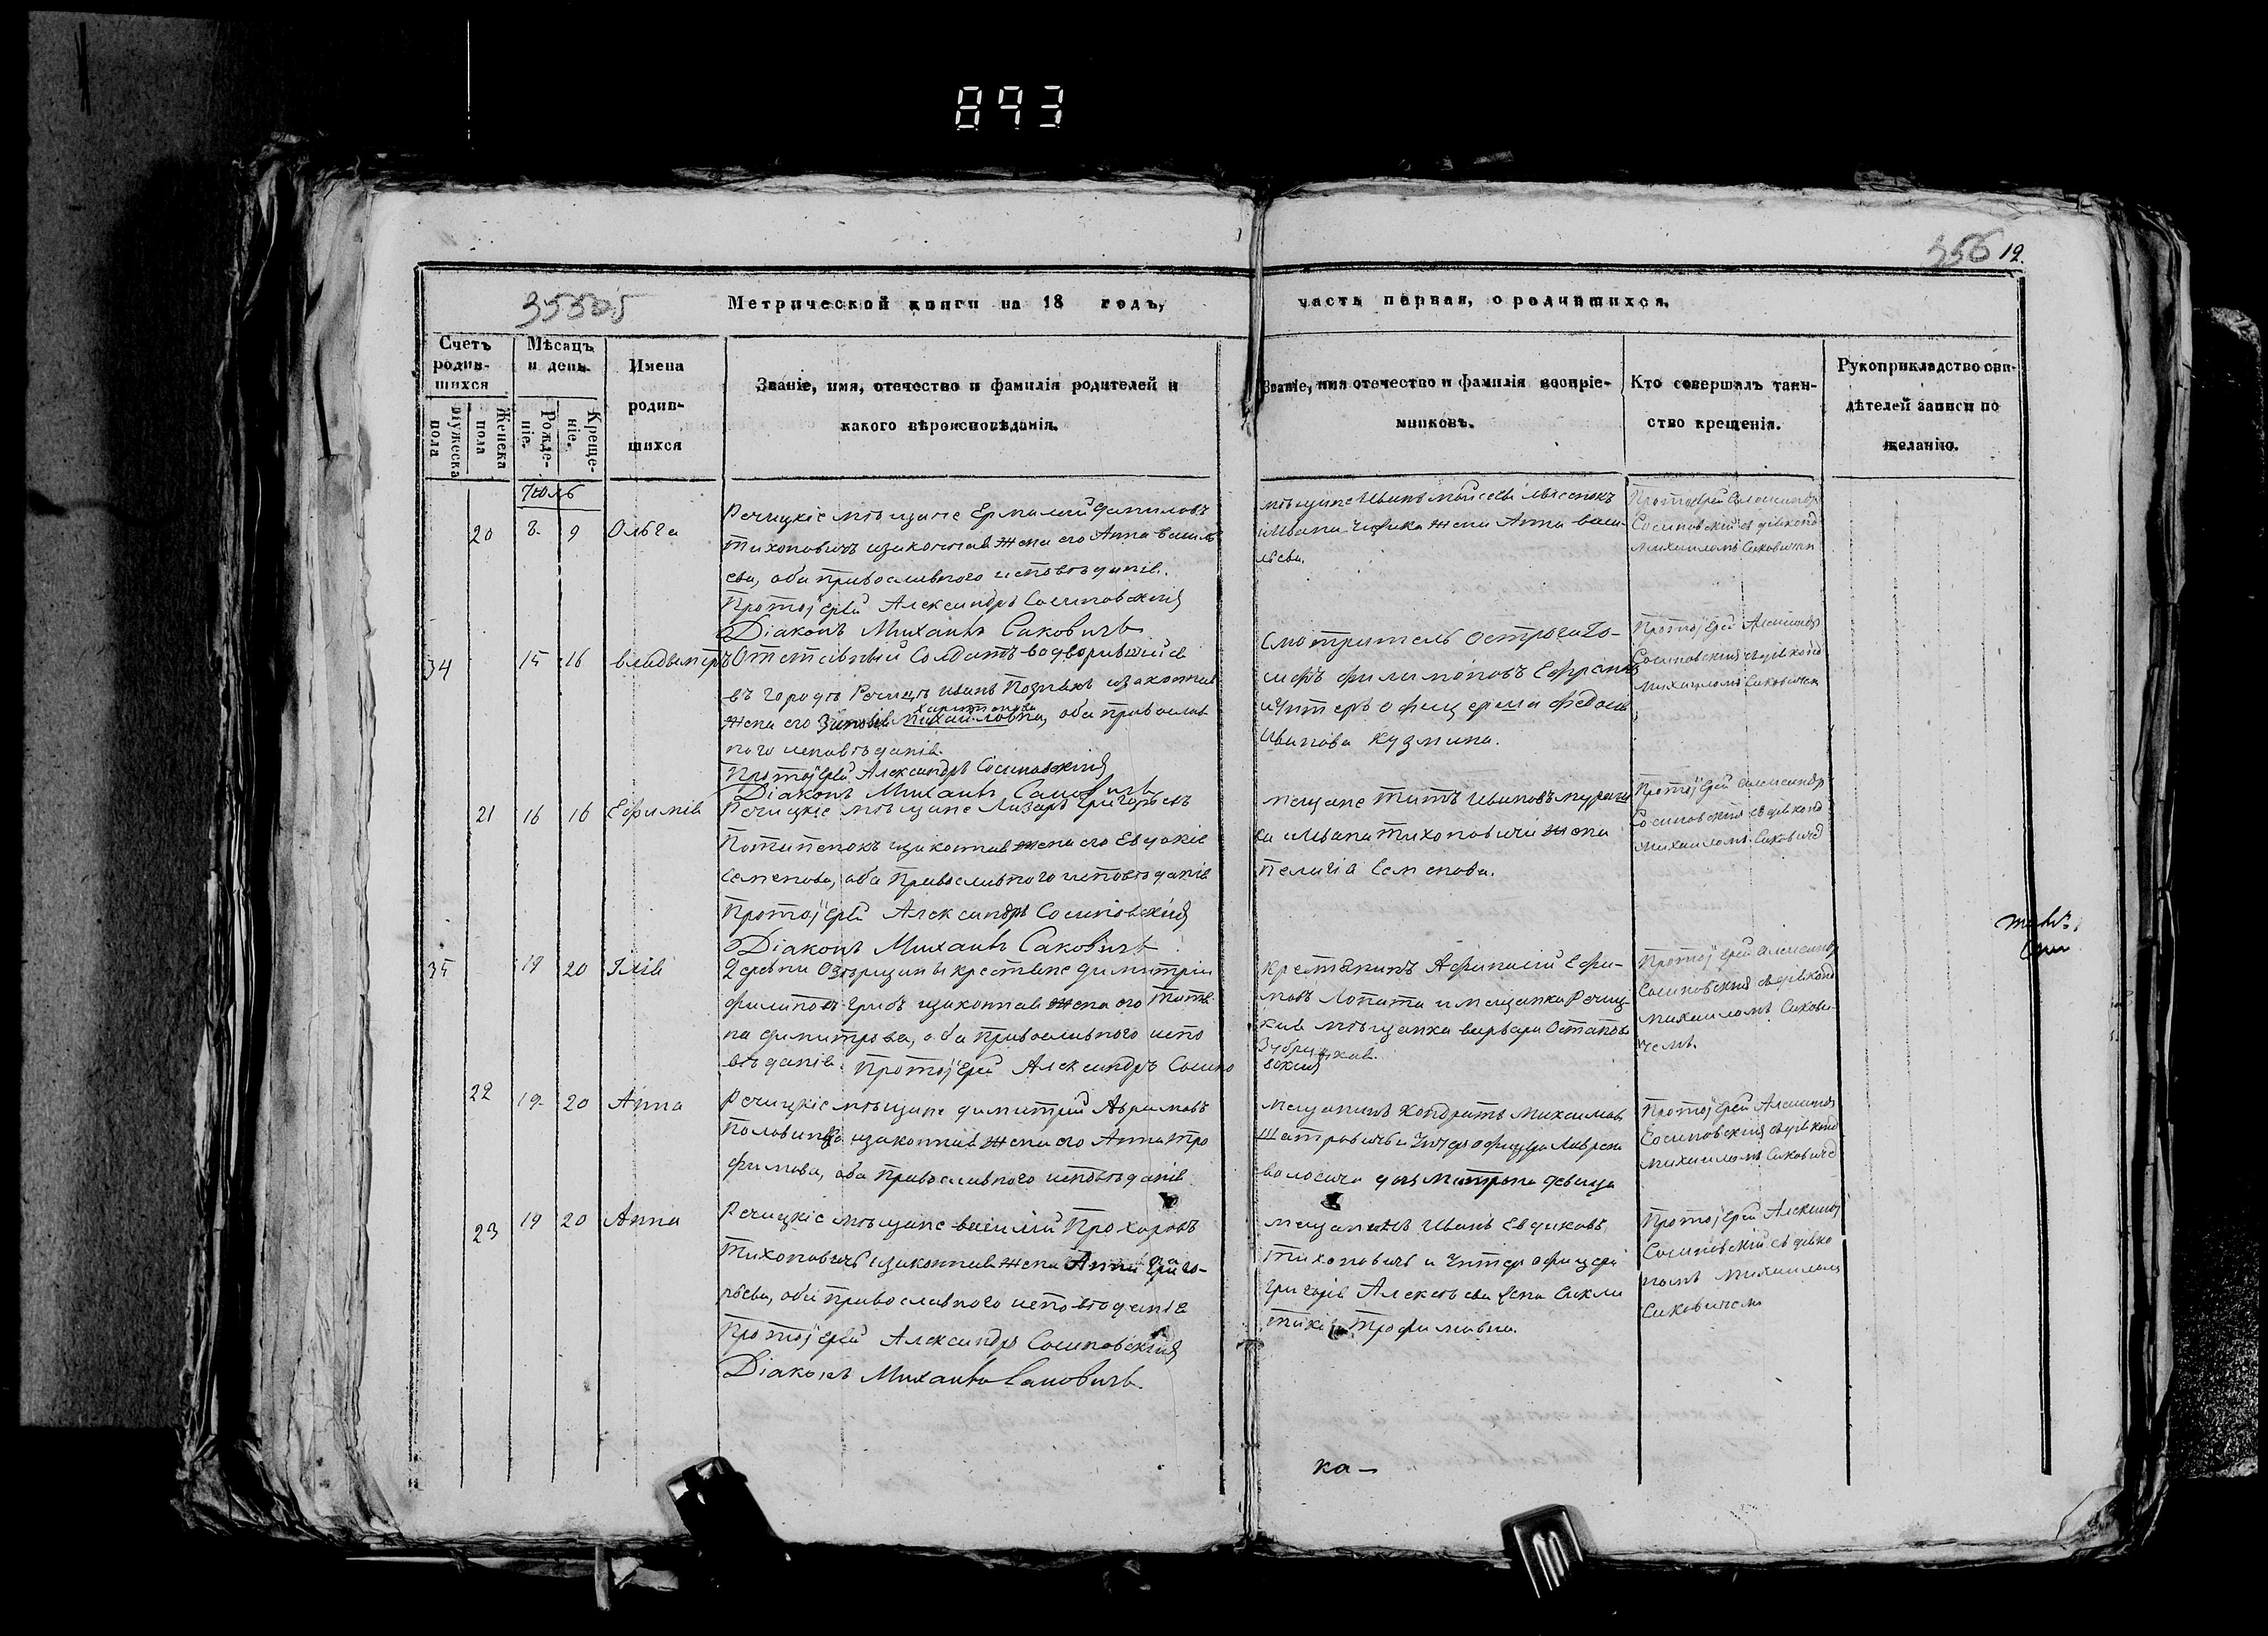 893
356 12.
35505
Метрической книги на 18 годъ, часть первая, о родившихся.
Счетъ родив-шихся
Мужеска пола
Женска пола
Мѣсяцъ и день.
Рожде-ніе.
Креще-ніе.
Имена родив-шихся
Званіе, имя, отечество и фамилія родителей и какого вѣроисповѣданія.
Званіе, имя отечество и фамилія воспріе-мниковъ.
Кто совершалъ таин-ство крещенія.
Рукоприкладство сви-дѣтелей записи по желанію.
Июль
20 8. 9 Ольга
Речицкіе мѣщане Ермолай Даниловъ
Тихоновичъ изаконная жена его Анна Василь
ева, оба православного исповѣданія.
Протоіерей Александръ Сосиновскій
Діаконъ Михаилъ Саковичъ
мѣщане Иванъ Мойсеевъ
Ивана жена Анна Васи-
льева.
Протоіерей Александръ
Сосиновскій съ діакономъ
Михаиломъ Саковичемъ
34 15 16 Владимиръ
Отставный Солдатъ водворившийся
въ городѣ Речицѣ Иванъ Познякъ изаконная
жена его Зиновія Михайловна, оба православ
ного исповѣданія.
Харитонова
Протоіерей Александръ Сосиновскій
Діаконъ Михаилъ Саковичъ
Смотритель острога Іо-
сифъ Филимоновъ Ефремовъ
и Унтеръ офицерша Федосія
Иванова Кузмина.
Протоіерей Александръ
Сосиновскій съ діакономъ
Михаиломъ Саковичемъ
21 16 16 Ефимія
Речицкіе мѣщане Лазарь Григорьевъ
Потапенокъ изаконная жена его Евдокія
Семенова, оба Православного исповѣданія
Протоіерей Александръ Сосиновскій
Діаконъ Михаилъ Саковичъ
Мещане Титъ Ивановъ
Ивана Тихоновича жена
Пелагія Семенова.
Протоіерей Александръ
Сосиновскій съ діакономъ
Михаиломъ Саковичемъ
35 19 20 Илія
Деревни Озерщины крестьяне Димитрій
Филиповъ Грибъ изаконная жена его Татья
на Димитрова, оба Православного испо
вѣданія. Протоіерей Александръ Сосино
вскій
Крестьянинъ Афанасій Ефи-
мовъ Лопата и мещанка Речиц-
кая мѣщанка Варвара Остапова
Зубрицкая.
Протоіерей Александръ
Сосиновскій съ діакономъ
Михаиломъ Сакови-
чемъ.
22 19. 20 Анна
Речицкіе мѣщане Димитрій Аврамовъ
Половинко изаконная жена его Анна Тро
фимова, оба Православного исповѣданія
Мещанинъ Кондратъ Михайловъ
Шатровичъ и Унтеръ офицера Лаврена
Волосача дочь Матрона девица
Протоіерей Александръ
Сосиновскій съ діакономъ
Михаиломъ Саковичемъ
23 19 20 Анна
Речицкіе мѣщане Василій Прохоровъ
Тихоновичъ изаконная жена Анна Григо-
рьева, оба православного исповѣданія
Протоіерей Александръ Сосиновскій
Діаконъ Михаилъ Саковичъ.
Мещанинъ Иванъ Евдоковъ
Тихоновичъ и Унтеръ офицера
Григорія Алексѣева жена
Трофимовна.
Протоіерей Александръ
Сосиновскій съ діако
номъ Михаиломъ
Саковичемъ
ка-